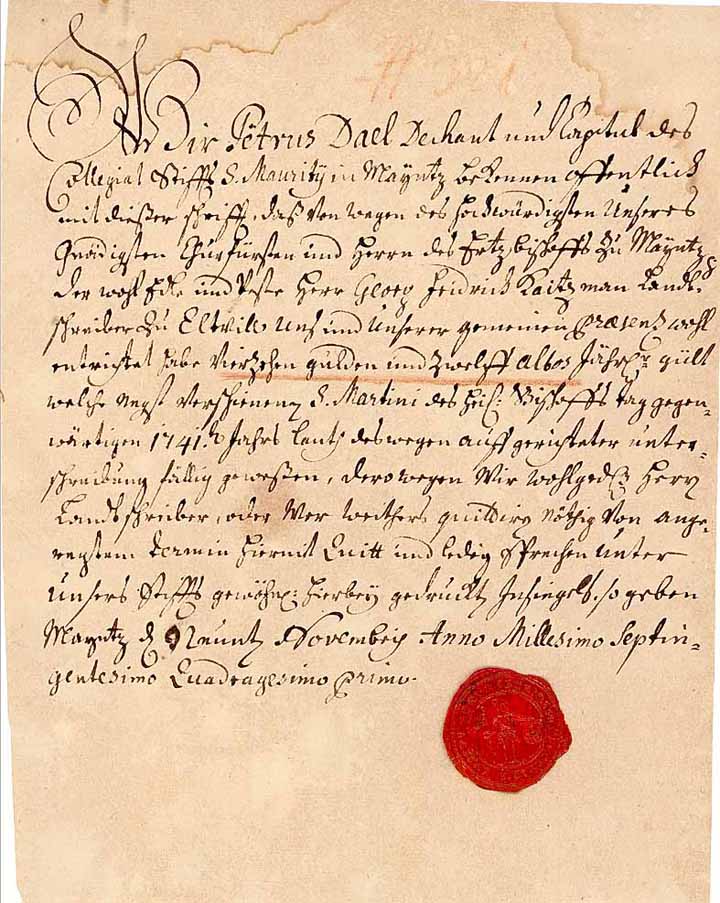 Wir Petrus Dael Dechant und Capitul des
Collegiat Stiffts S. Maurity in Mayntz bekennen offentlich
mit dießer schrifft, daß von wegen des hochwürdigsten Unseres
Gnädigsten Churfürsten und Herrn des Ertzbischoffs zu Mayntz
der wohl Edle und Veste Herr Georg Heidrich Kaitzman Landt-
schreiber zu Eltvill Uns und Unserer gemeinen Præsentz wohl
entrichtet habe Vierzehen gulden und zwölff albos Jährl: gült
welche negst verschienenen S. Martini des heil: Bischoffs tag gegen-
wärtigen 1741 Jahrs lauth deswegen auffgerichteter unter-
schreibung fällig geweßen, derowegen Wir wohlged: Herrn
Landtschreiber, oder wer weithers quittirens nöthig von ange-
regtem termin hiermit Quitt und ledig sprechen unter
unsers Stiffts gewöhnl: hierbey gedruckten Insiegels. so geben
Mayntz d. Neunten Novembris Anno Millesimo Septin-
gentesimo Quadragesimo Primo.